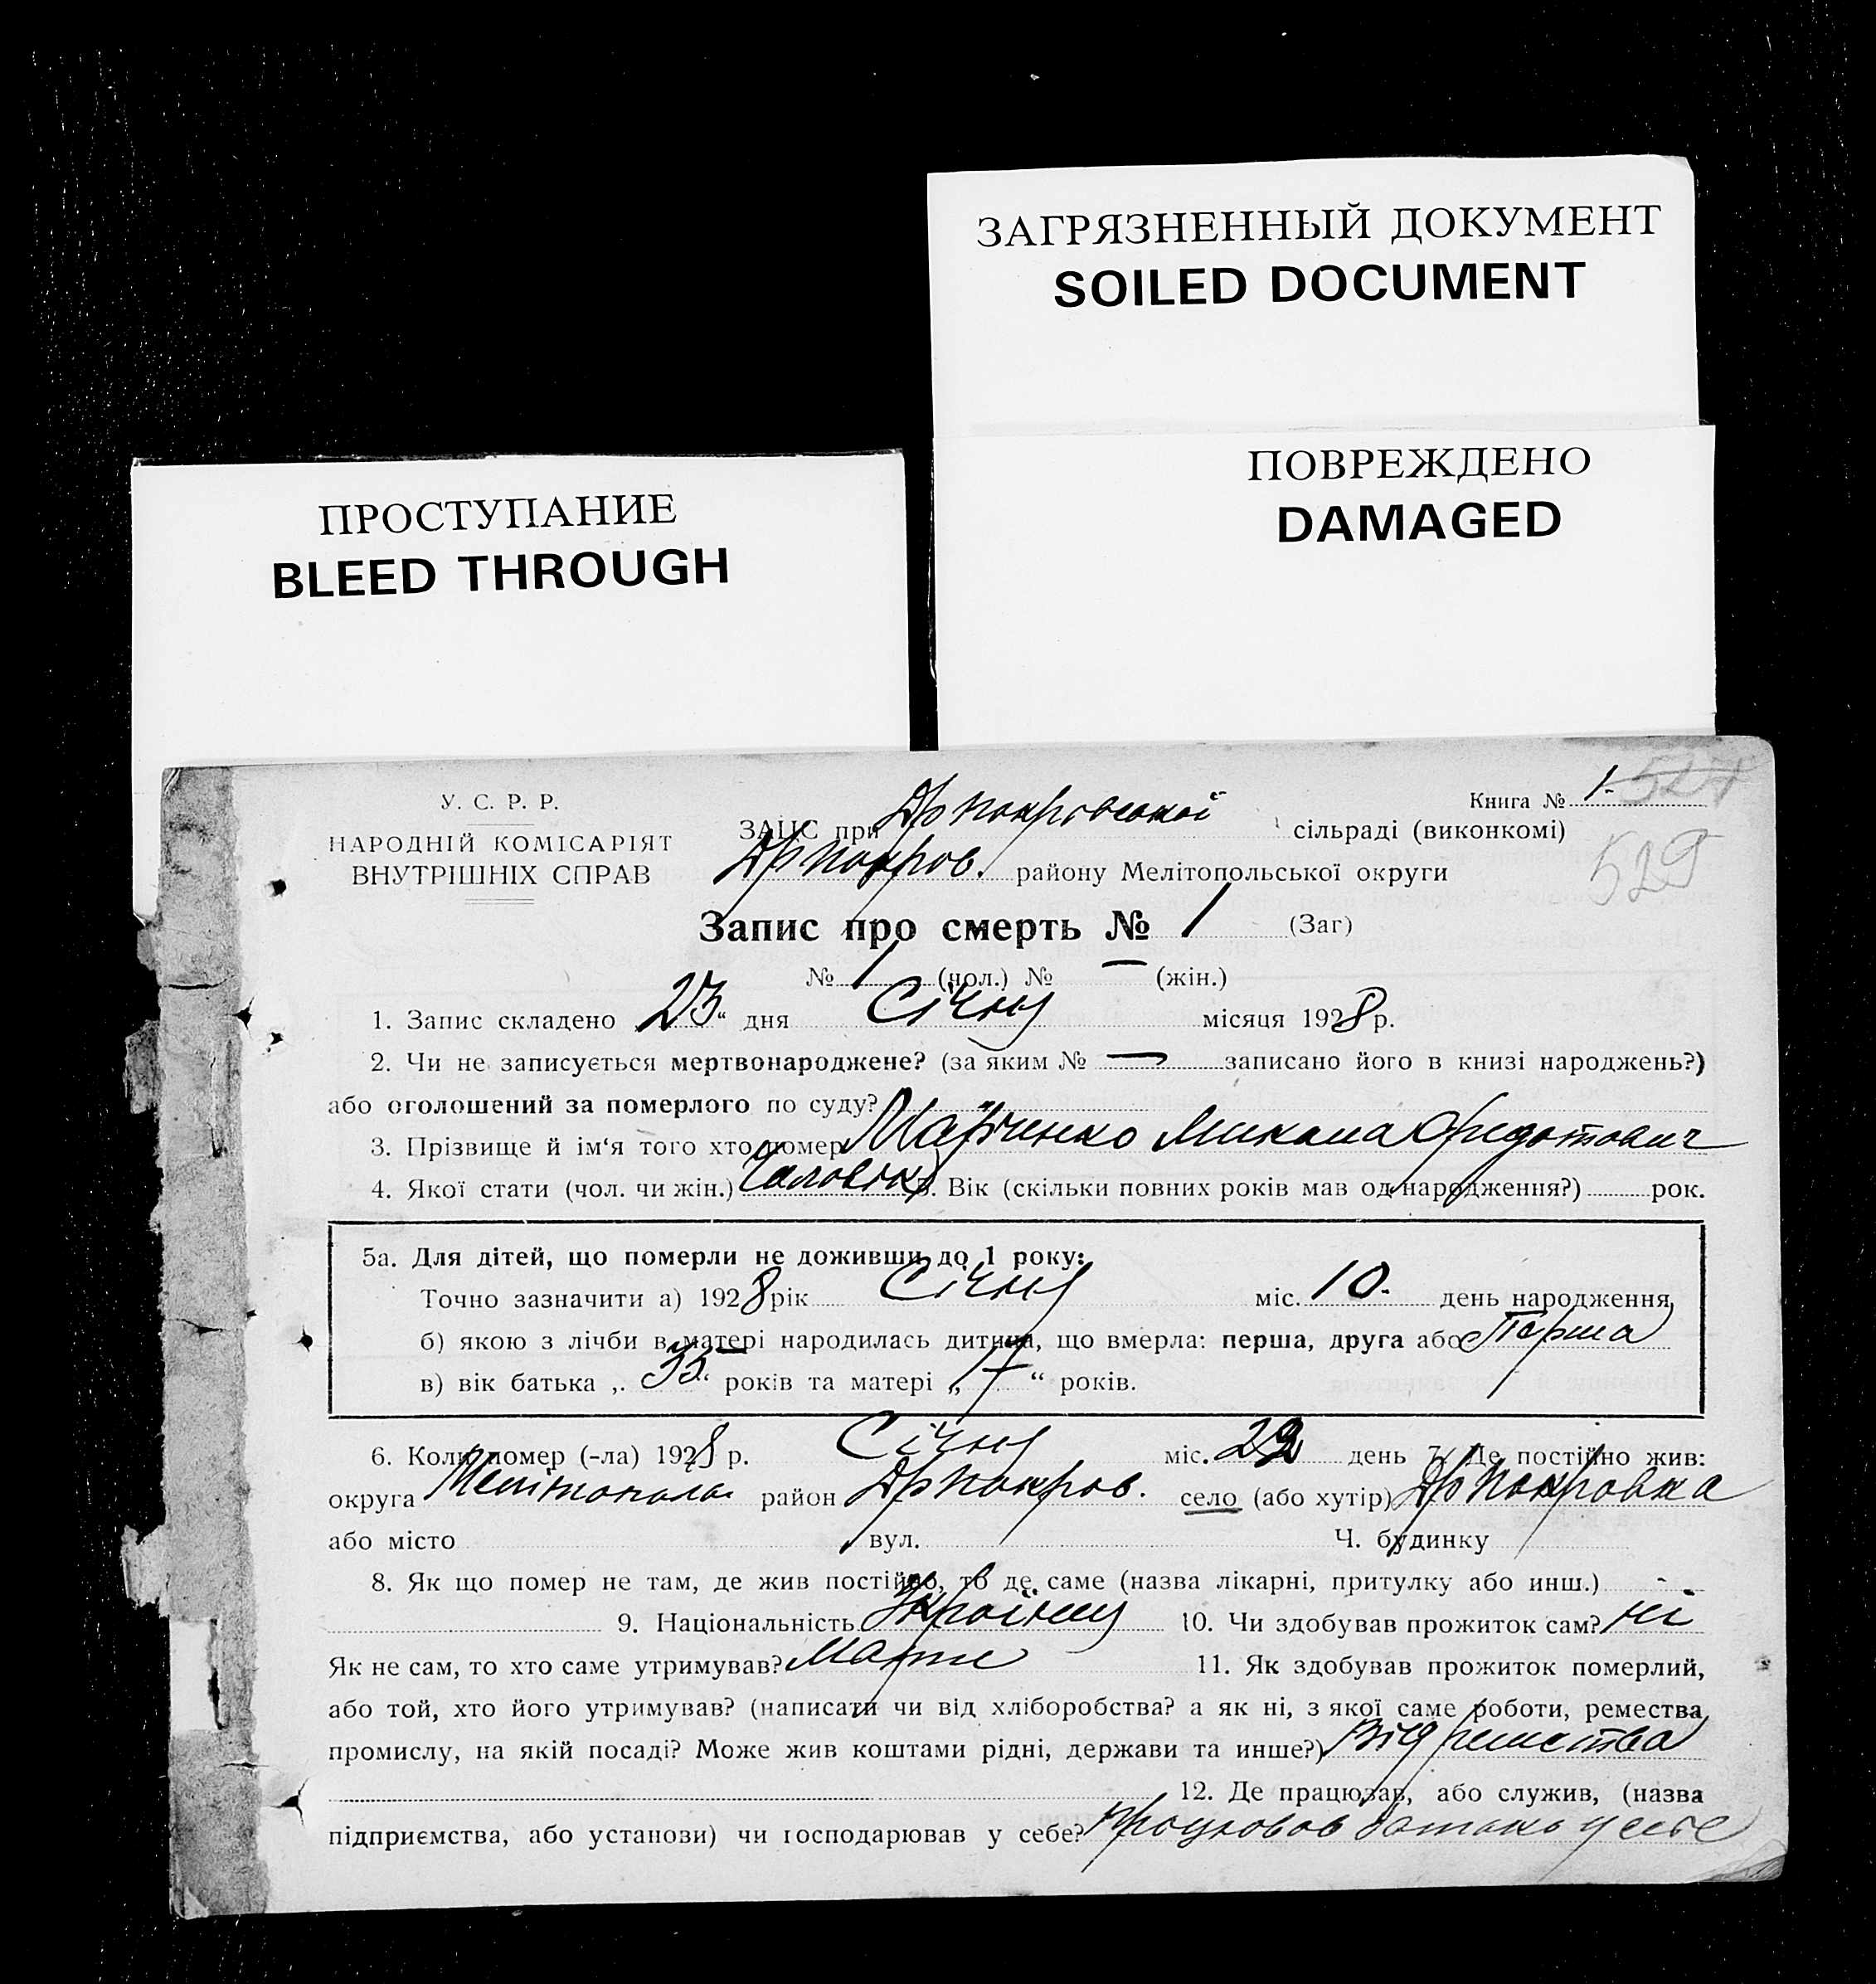 ЗАГРЯЗНЕННЫЙ ДОКУМЕНТ
SOILED DOCUMENT
ПОВРЕЖДЕНО
DAMAGED
ПРОСТУПАНИЕ
BLEED THROUGH
У. С. Р. Р.
НАРОДНІЙ КОМІСАРІЯТ
ВНУТРІШНІХ СПРАВ
Книга № 1. 527
529
ЗАЦС при Др Покровської сільраді (виконкомі)
Др Покров. району Мелітопольської округи
Запис про смерть № 1 (Заг)
№ 1 (чол.) № — (жін.)
1. Запис складено „23“ дня Січня місяця 1928 р.
2. Чи не записується мертвонароджене? (за яким № — записано його в книзі народжень?)
або оголошений за померлого по суду? „
3. Прізвище й ім‘я того хто помер Марченко Микола Федотович
4. Якої стати (чол. чи жін.) Чоловік 5. Вік (скільки повних років мав од народження?) рок.
5а. Для дітей, що померли не доживши до 1 року:
Точно зазначити а) 1928 рік Січня міс. 10. день народження,
б) якою з лічби в матері народилась дитина, що вмерла: перша, друга або Перша
в) вік батька „35“ років та матері „17“ років.
6. Коли помер (-ла) 1928 р. Січня міс. 22 день 7. Де постійно жив:
округа Мелітополь. район Др Покров. село (або хутір) Др Покровка
або місто вул. Ч. будинку
8. Як що помер не там, де жив постійно, то де саме (назва лікарні, притулку або инш.) -
9. Національність Україн. 10. Чи здобував прожиток сам? ні
Як не сам, то хто саме утримував? Мати 11. Як здобував прожиток померлий,
або той, хто його утримував? (написати чи від хліборобства? а як ні, з якої саме роботи, ремества
промислу, на якій посаді? Може жив коштами рідні, держави та инше?) Від ремества
12. Де працював, або служив, (назва
підприємства, або установи) чи господарював у себе? працював батько у себе